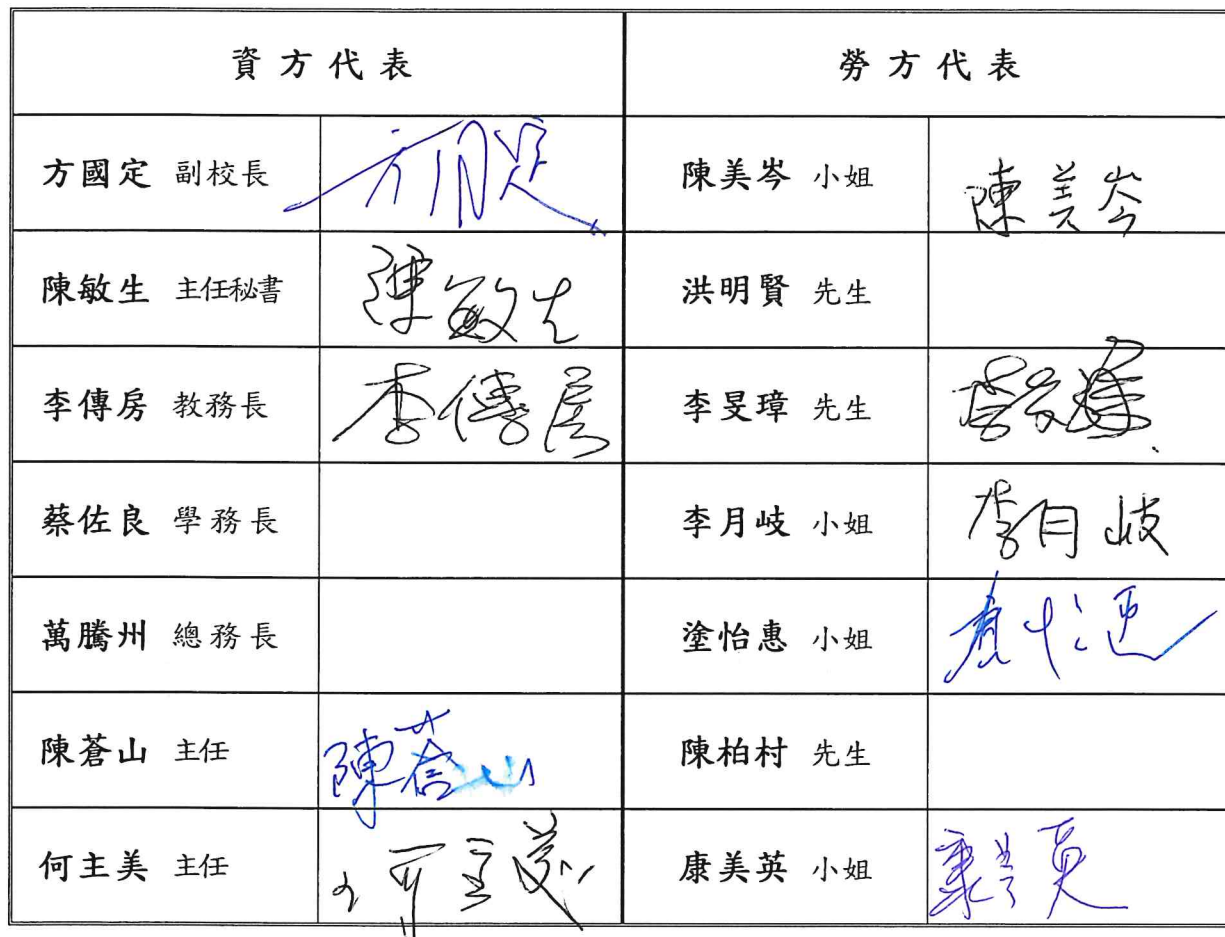 資方代表 勞方代表
方國定 副校長 方國定 陳美岑 小姐 陳美岑
陳敏生 主任秘書 陳敏生 洪明賢 先生
李傳房 教務長 李傳房 李旻璋 先生
蔡佐良 學務長 李月岐 小姐 李月岐
萬騰州 總務長 塗怡惠 小姐
陳蒼山 主任 陳蒼山 陳柏村 先生
何主美 主任 何主美 康美英 小姐 康美英